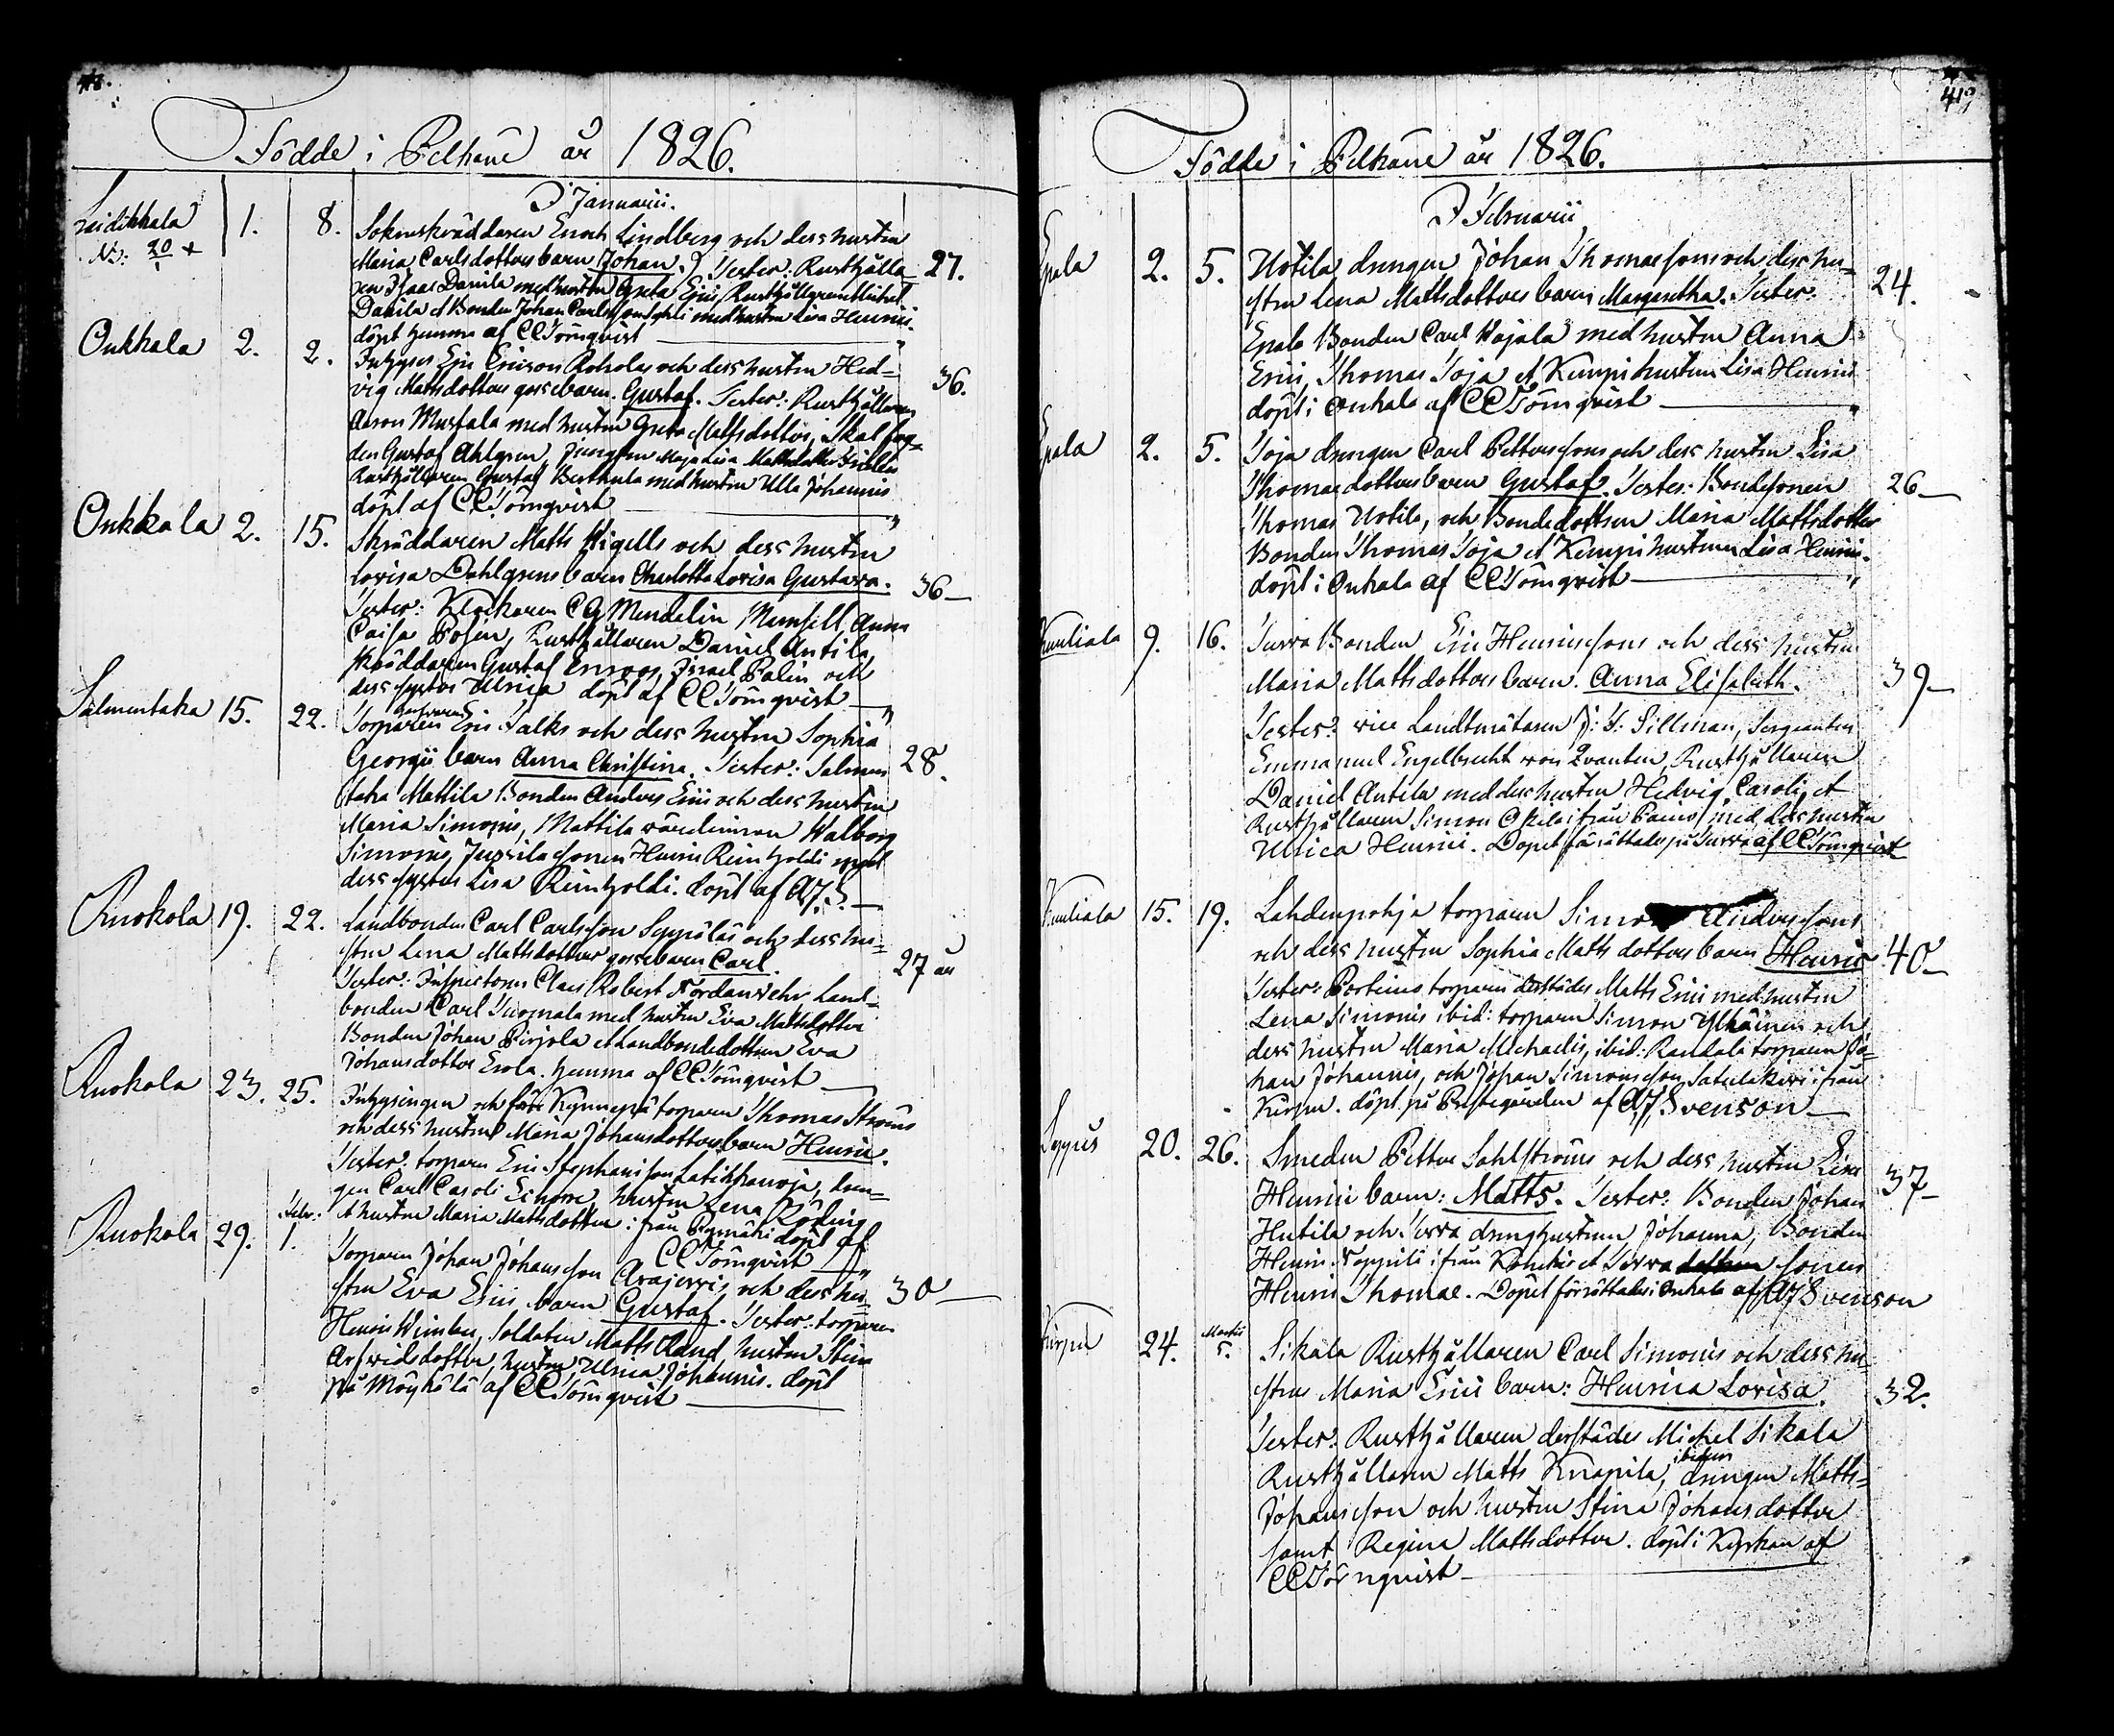 Födde i Pelkäne år 1826.
I Januarii.
Laidikkala 1. 8. Soknskräddaren Enoch Lindberg och dess hustru
Maria Carlsdotters barn Johan. Tester: Rusthålla- 27.
ren Isaac Danila med hustru Greta Erici, Rusthållaren Michel
Danila et Bonden Johan Carlsson med hustru Lisa Henrici.
döpt hemma af CCTörnqvist
Onkkala 2. 2. Inhyses Eric Ericson Roholas och dess hustru Hed-
vig Mattsdotters gossebarn. Gustaf. Tester: Rusthållaren 36.
Aaron Mussala med hustru Greta Mattsdotter, Skalfog-
den Gustaf Ahlgren, Jungfrun Maja Lisa Mattsdotter
Rusthållaren Gustaf Berthula med hustru Ulla Johannis
döpt af CCTörnqvist
Onkkala 2. 15. Skräddaren Matts Wigells och dess hustru
Lovisa Dahlgrens barn Charlotta Lovisa Gustava. 36
Tester: Klockaren CG Mendelin, Mamsell Anna
Caisa Posin, Rusthållaren Daniel Antila,
skräddaren Gustaf Enroos, Israel Palin och
dess syster Ulrica döpt af CCTörnqvist
Salmentaka 15. 22. Torparen Eric Falks och dess hustru Sophia
Georgii barn Anna Christina. Tester: Salmen 28.
taka Mattila Bonden Anders Erici och dess hustru
Maria Simonis, Mattila värdinnan Walborg
Simonis, Jussila sonen Henric Reinholdi med
dess syster Lisa Reinholdi. döpt af AJS.
Ruokola 19. 22. Landbonden Carl Carlsson Seppäläs och dess hu-
stru Lena Mattsdotters gossebarn Carl. 27 år
Tester: Inspectoren Claes Robert Nordanwehr, Land-
bonden Carl Tuomala med hustru Eva Mattsdotter
Bonden Johan Pirjola et Landbondedottren Eva
Johansdotter Erola. hemma af CCTörnqvist
Ruokola 23. 25. Inhysingen och förre Kynnepä torparen Thomas Ströms
och dess hustrus Maria Johansdotters barn Henric.
Tester: torparen Eric Stephansson Latikkanoja, dren-
gen Carl Caroli hustrun Lena Röding
et hustru Maria Mattsdotter ifrån döpt af
CCTörnqvist
Ruokola 29. Febr: 1. Torparen Johan Johansson Arajervis och dess hu- 30
stru Eva Erici barn Gustaf. Tester: torparen
Henric Winter, Soldaten Matts Rand, hustru Stina
Arfwidsdotter, hustru Ulrica Johannis. döpt
på Möyhölä af CCTörnqvist
419
Födde i Pelkäne år 1826.
I Februarii
Epala 2. 5. Uotila drengen Johan Thomassons och dess hu-
stru Lena Mattsdotters barn Margaretha. Tester: 24.
Epala Bonden Carl Hajala med hustru Anna
Erici, Thomas Soja et Kempi hustrun Lisa Henrici
döpt i Onkala af CCTörnqvist
Epala 2. 5. Soja drengen Carl Petterssons och dess hustru Lisa
Thomaedotters barn Gustaf. Tester: Bondesonen 26
Thomas Uotila, och Bondedottren Maria Mattsdotter
Bonden Thomas Soja et Kempi hustrun Lisa Henrici.
döpt i Onkala af CCTörnqvist
Kuuliala 9. 16. Surra Bonden Eric Henricssons och dess hustru
Maria Mattsdotters barn. Anna Elisabeth. 39
Tester: vice Landtmätaren J: F: Sillman, Sergeanten
Emmanuel Engelbrecht von Qvanten, Rusthållaren
Daniel Antila med dess hustru Hedvig Caroli, et
Rusthållaren Simon Ospila ifrån med dess hustru
Ulrica Henrici. Dopet förrättades på Surra af CCTörnqvist
Kuuliala 15. 19. Lahdenpohja torparen Simon Anderssons
och dess hustru Sophia Matts dotters barn Henric 40
Tester: torparen derstädes Matts Erici med hustru
Lena Simonis ibid: torparen Simon Ylhäinen och
dess hustru Maria Michaelis, ibid: Randala torparen Jo-
han Johannis, och Johan Simonsson ifrån
döpt på Prestegården af AJ Svenson
Seppus 20. 26. Smeden Petter Sahlströms och dess hustru Lisa
Henrici barn: Matts. Tester: Bonden Johan 37
Hutila och Serra drenghustrun Johanna, Bonden
Henric ifrån et Serra sonen
Henric Thomae. Dopet förrättades i Onkala af AJ Svenson
24. Martii 5. Sikala Rusthållaren Carl Simonis och dess hu-
strus Maria Erici barn: Henrica Lovisa. 32.
Tester: Rusthållaren derstädes Michel Sikala
Rusthållaren Matts Knapila, ibidem drengen Matts-
Johansson och hustru Stina Johansdotter
samt Regina Mattsdotter. döpt i Kyrkan af
CCTörnqvist